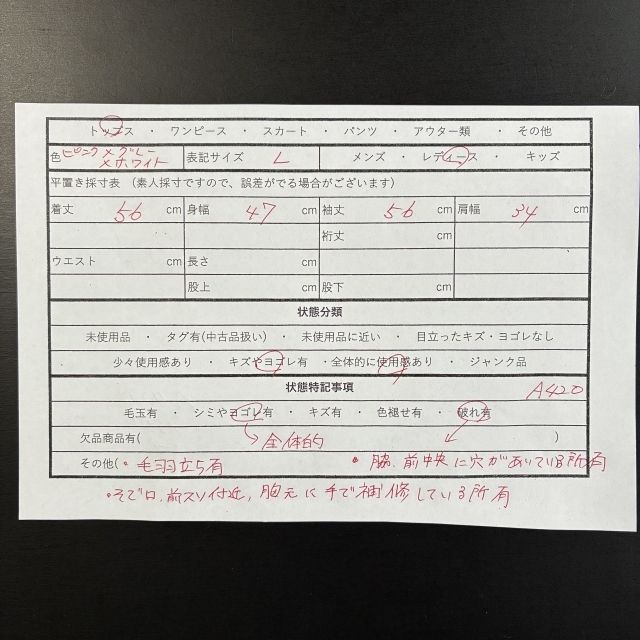 トップス ・ ワンピース ・ スカート ・ パンツ ・ アウター類 ・ その他
色 ピンク×グレー×ホワイト 表記サイズ L メンズ ・ レディース ・ キッズ
平置き採寸表 （素人採寸ですので、誤差がでる場合がございます）
着丈 56 cm 身幅 47 cm 袖丈 56 cm 肩幅 34 cm
裄丈 cm
ウエスト cm 長さ cm
股上 cm 股下 cm
状態分類
未使用品 ・ タグ有(中古品扱い) ・ 未使用品に近い ・ 目立ったキズ・ヨゴレなし
少々使用感あり ・ キズやヨゴレ有 ・全体的に使用感あり ・ ジャンク品
状態特記事項 A420
毛玉有 ・ シミやヨゴレ有 ・ キズ有 ・ 色褪せ有 ・ 破れ有
欠品商品有( 全体的 )
その他(・毛羽立ち有 ・脇、前中央に穴があいている所有
・そで口、前スソ付近、胸元に手で補修している所有